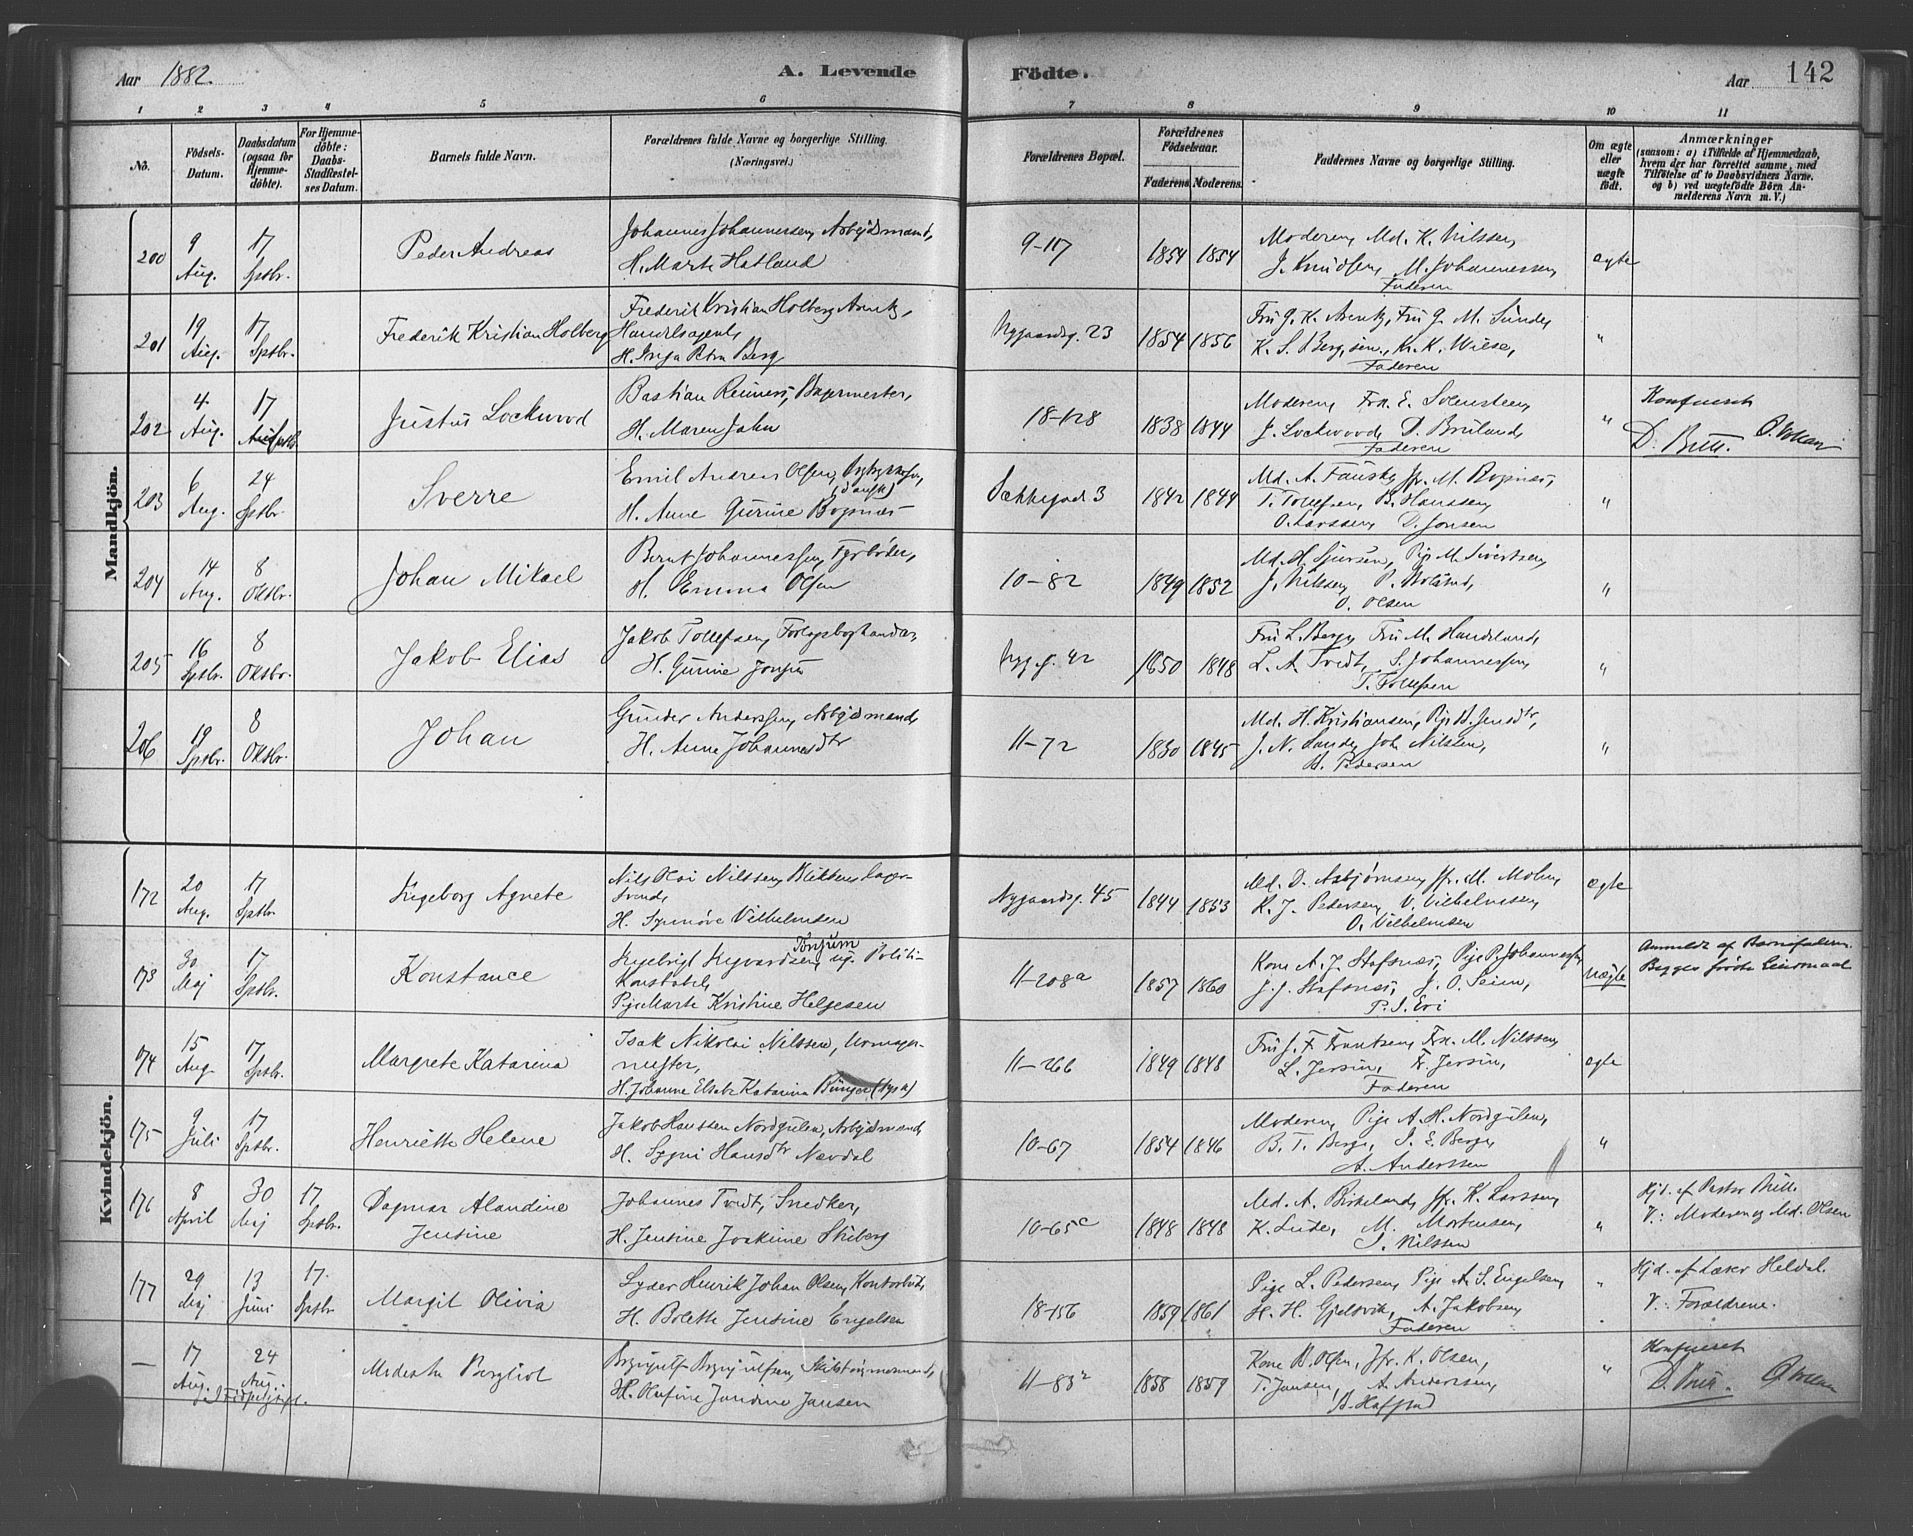 Aar 1882.
A. Levende Födte.
Aar 142
1 2 3 4 5 6 7 8 9 10 11
No.
Födsels-Datum.
Daabsdatum (ogsaa for Hjemme-döbte).
For Hjemme-döbte: Daabs-Stadfæstel-ses Datum.
Barnets fulde Navn.
Forældrenes fulde Navne og borgerlige Stilling. (Næringsvei.)
Forældrenes Bopæl.
Forældrenes Födselsaar.
Faderens. Moderens.
Faddernes Navne og borgerlige Stilling.
Om ægte eller uægte födt.
Anmærkninger
(saasom: a) i Tilfælde af Hjemmedaab, hvem der har forrettet samme, med Tilföielse af to Daabsvidners Navne, og b) ved uægtefödte Börn An-melderens Navn m. V.)
Mandkjön.
200 9 Aug. 17 Sptbr. Peder Andreas
Johannes Johannessen, Arbejdsmand,
H. Marte Hatland
9-117 1854 1854
Moderen, Md. K. Nilssen,
J. Knudsen, M. Johannessen,
Faderen
ægte
201 19 Aug. 17 Sptbr. Frederik Kristian Holberg
Frederik Kristian Holberg Arentz,
Handelsagent,
H. Inga Petra Berg
Nygaardsg. 23 1854 1856
Fru G. K. Arentz, Fru G. M. Sunde,
K. S. Berg, sen., K. K. Wiese,
Faderen
"
202 4 Aug. 17 Justus Lockwood
Bastian Reimers, Bagermester,
H. Maren Jahn
18-128 1838 1844
Moderen, Frk. E. Svensteen,
J. Lockwood, D. Bruland,
Faderen
"
203 6 Aug. 24 Sptbr. Sverre
Emil Andreas Olsen,
H. Anne Gurine Bognæs
3 1842 1844
Md. A. Fauske, Jfr. M. Bognæs,
T. Tollefsen, B. Hanssen,
O. Larssen, D. Jonsen
"
204 14 Aug. 8 Oktbr. Johan Mikael
Bernt Johannessen, Fyrbøder,
H. Emma Olsen
10-82 1849 1852
Md. H. Sjursen, Pige M. Sivertsen,
J. Nilssen,
O. Olsen
"
205 16 Sptbr. 8 Oktbr. Jakob Elias
Jakob Tollefsen, Forlagsboghandler,
H. Gurine
Nyg. g. 42 1850 1848
Fru L. Berge, Fru M. Handeland,
L. A. Tvedt, S. Johannessen,
T. Tollefsen
"
206 19 Sptbr. 8 Oktbr. Johan
Gunder Anderssen, Arbejdsmand
H. Anne Johannesdtr
11-72 1830 1845
Md. H. Kristiansen, Pige
J. N. Sande, Joh. Nilssen,
A. Pedersen
"
Kvindekjön.
172 20 Aug. 17 Sptbr. Ingeborg Agnete
Nils Olai Nilssen, Blikkenslager-
svend,
H. Synnøve Vilhelmsen
Nygaardsg. 45 1844 1853
Md. D. Asbjørnsen, Jfr. M. Mohn,
K. J. Pedersen, V. Vilhelmsen,
O. Vilhelmsen
ægte
173 30 Maj 17 Sptbr. Konstance
Ingebrigt Ingvardsen Tønjum, ug. Politi-
konstabel,
Pige Marte Kristine Helgesen
11-208a 1857 1860
Kone A. J. Stafsnæs, Pige P. Johannessen,
J. J. Stafsnæs, J. O. Seim,
P. S. Evi
uægte
Anmeldt af Barnefaderen.
Begges første Leiermaal
174 15 Aug. 17 Sptbr. Margrete Katarina
Isak Nikolai Nilssen, Urmager-
mester,
H. Johanne Elsabe Katarina Bünger (tysk)
11-266 1849 1848
Fru J. F. Frantsen, Frk. M. Nilssen,
L. Jersin, Fr. Jersin,
Faderen
ægte
175 9 Juli 17 Sptbr. Henriette Helene
Jakob Hanssen Nordgulen, Arbejdsmand
H. Sygni Hansdtr Nævdal
10-67 1854 1846
Moderen, Pige A. H. Nordgulen,
B. T. Berge, S. E. Berge,
A. Anderssen
"
176 8 April 30 Maj 17. Sptbr. Dagmar Alandine
Jensine
Johannes Tvedt, Snedker,
H. Jensine Joakime Stiberg
10-65c 1848 1848
Md. A. Birkeland, Jfr. K. Larssen,
K. Lide, M. Mortensen,
J. Nilssen
"
Hjd. af Pastor
V.: Moderen og Md. Olsen
177 29 Maj 13 Juni 17. Sptbr. Margit Olivia
Lyder Henrik Johan Olsen, Kontorbud,
H. Bolette Jensine Engelsen
18-156 1859 1861
Pige L. Pedersen, Pige A. S. Engelsen,
H. H. Gjelsvik, A. Jakobsen,
Faderen
"
Hjd. af Læser Heldal.
V.: Forældrene.
— 17 Aug. 24 Aug. Modesta Bergliot
H. Rufine Jandine Jansen
11-83 1858 1859
Kone B. Olsen, Jfr. K. Olsen,
T. Jansen, A. Anderssen,
"